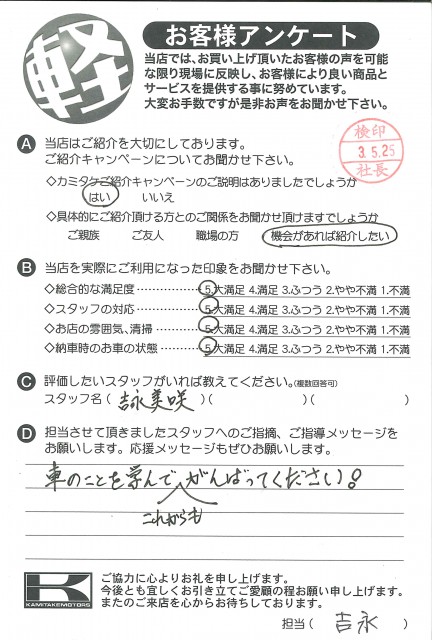 軽
お客様アンケート
当店では、お買い上げ頂いたお客様の声を可能
な限り現場に反映し、お客様により良い商品と
サービスを提供する事に努めています。
大変お手数ですが是非お声をお聞かせ下さい。
検印
3.5.25
社長
A 当店はご紹介を大切にしております。
ご紹介キャンペーンについてお聞かせ下さい。
◇カミタケご紹介キャンペーンのご説明はありましたでしょうか
はい いいえ
◇具体的にご紹介頂ける方とのご関係をお聞かせ頂けますでしょうか
ご親族 ご友人 職場の方 機会があれば紹介したい
B 当店を実際にご利用になった印象をお聞かせ下さい。
◇総合的な満足度 ・・・・・・・・・ 5.大満足 4.満足 3.ふつう 2.やや不満 1.不満
◇スタッフの対応 ・・・・・・・・・ 5.大満足 4.満足 3.ふつう 2.やや不満 1.不満
◇お店の雰囲気、清掃 ・・・・・・ 5.大満足 4.満足 3.ふつう 2.やや不満 1.不満
◇納車時のお車の状態 ・・・・・・ 5.大満足 4.満足 3.ふつう 2.やや不満 1.不満
C 評価したいスタッフがいれば教えてください。(複数回答可)
スタッフ名 ( 吉永美咲 )( )( )
D 担当させて頂きましたスタッフへのご指摘、ご指導メッセージを
お願いします。応援メッセージもぜひお願いします。
車のことを学んでがんばってください!
これからも
K
KAMITAKEMOTORS
ご協力に心よりお礼を申し上げます。
今後とも宜しくお引き立てご愛顧の程お願い申し上げます。
またのご来店を心からお待ちしております。
担当 ( 吉永 )